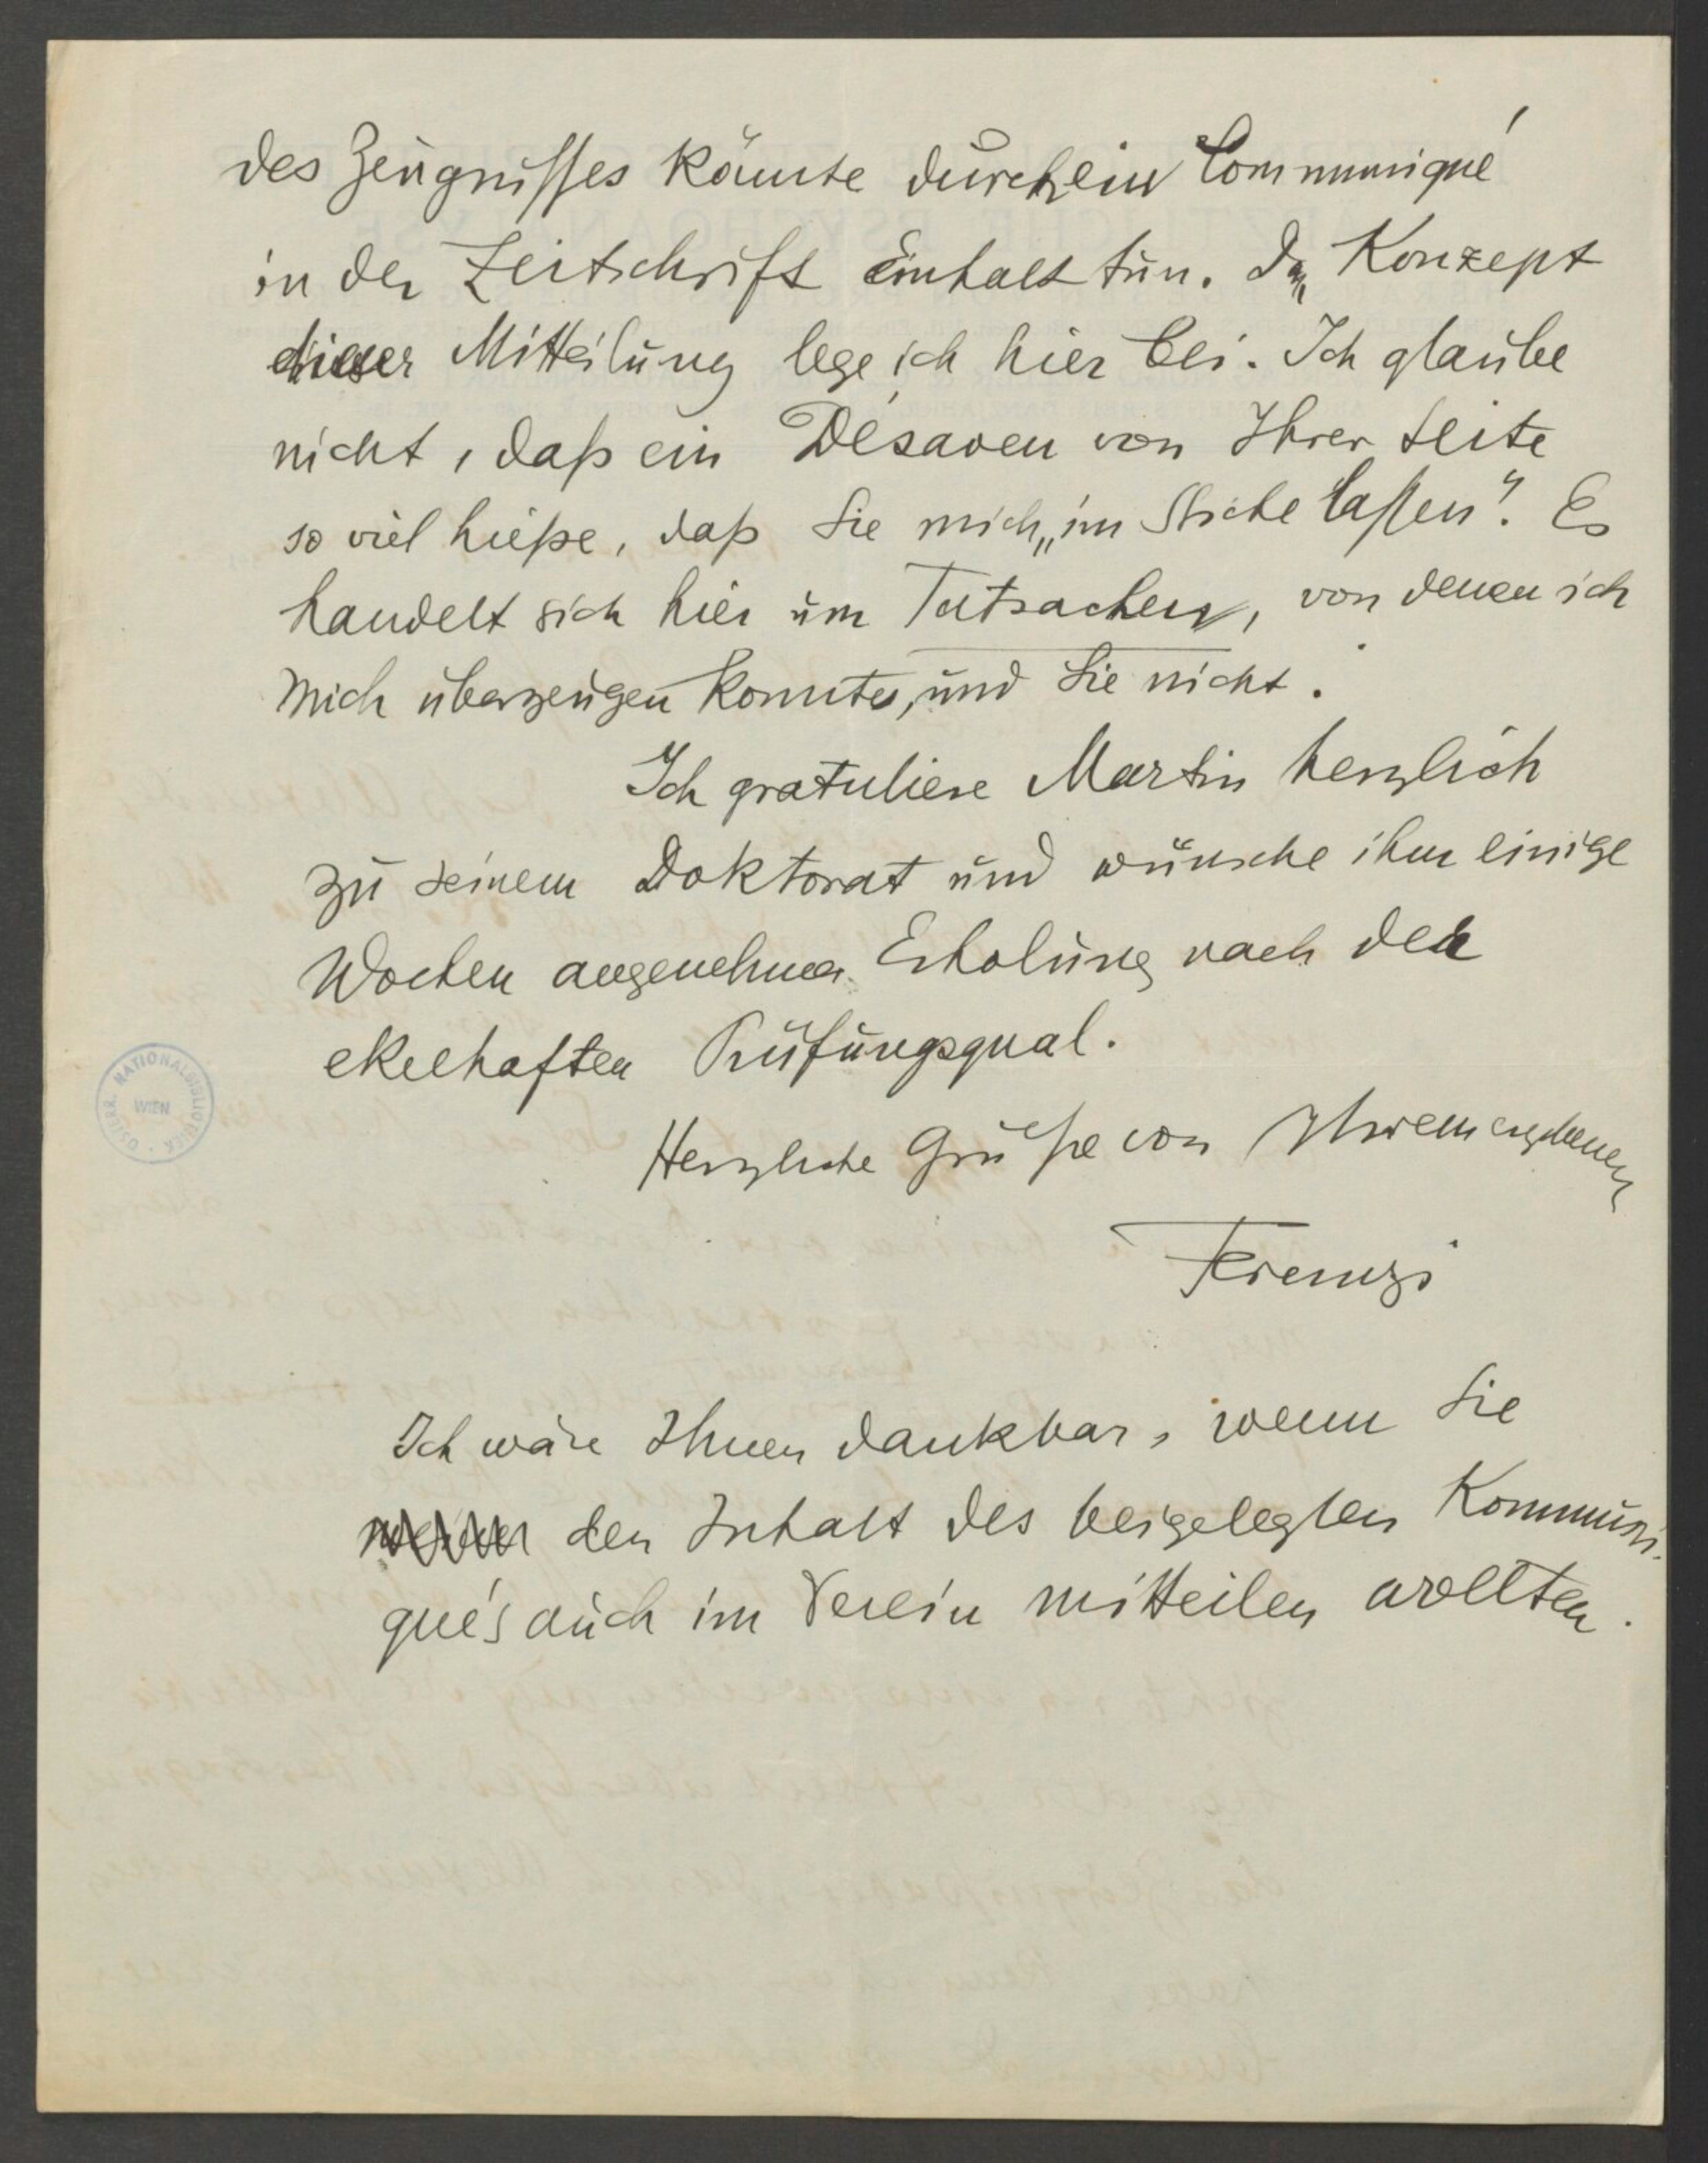 des Zeugnisses könnte durch ein Communiqué
in der Zeitschrift Einhalt tun. Das Konzept
dieser Mitteilung lege ich hier bei. Ich glaube
nicht, daß ein Désaveu von Ihrer Seite
so viel hieße, daß Sie mich „im Stiche lassen“. Es
handelt sich hier um Tatsachen, von denen ich
mich überzeugen konnte, und Sie nicht.
Ich gratuliere Martin herzlich
zu seinem Doktorat und wünsche ihm einige
Wochen angenehmer Erholung nach der
ekelhaften Prüfungsqual.
Herzliche Grüße von Ihrem ergebenen
Ferenczi
Ich wäre Ihnen dankbar, wenn Sie
den Inhalt des beigelegten Kommuni-
qué's auch im Verein mitteilen wollten.
ÖSTERR. NATIONALBIBLIOTHEK
WIEN